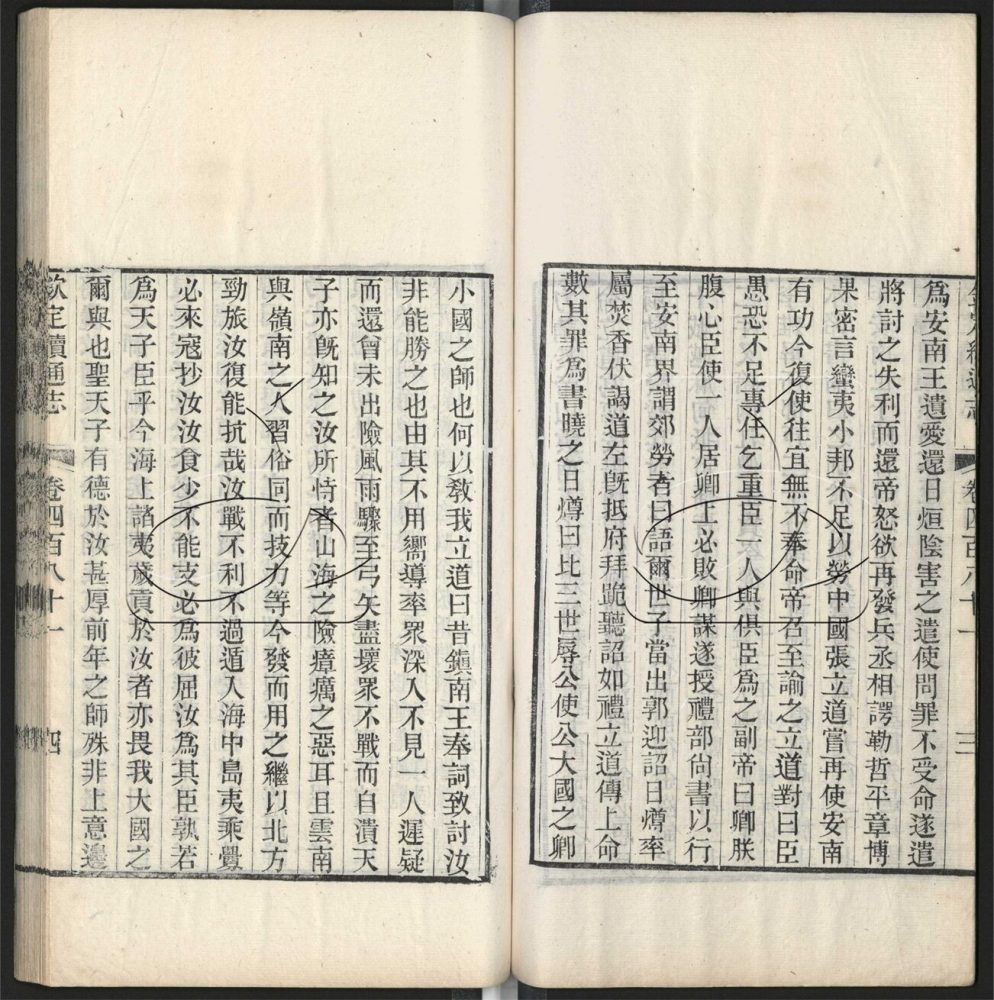 爲安南王遺愛還日烜陰害之遣使問罪不受命遂遣
將討之失利而還帝怒欲再發兵丞相諤勒哲平章博
果密言蠻夷小邦不足以勞中國張立道嘗再使安南
有功今復使往宜無不奉命帝召至諭之立道對曰臣
愚恐不足專任乞重臣一人與俱臣爲之副帝曰卿朕
腹心臣使一人居卿上必敗卿謀遂授禮部尙書以行
至安南界謂郊勞者曰語爾世子當出郭迎詔日燇率
屬焚香伏謁道左旣抵府拜跪聽詔如禮立道傳上命
數其罪爲書曉之日燇曰比三世辱公使公大國之卿
小國之師也何以敎我立道曰昔鎭南王奉詞致討汝
非能勝之也由其不用嚮導率眾深入不見一人遲疑
而還曾未出險風雨驟至弓矢盡壞眾不戰而自潰天
子亦旣知之汝所恃者山海之險瘴癘之惡耳且雲南
與嶺南之人習俗同而技力等今發而用之繼以北方
勁旅汝復能抗哉汝戰不利不過遁入海中島夷乘釁
必來寇抄汝汝食少不能支必爲彼屈汝爲其臣孰若
爲天子臣乎今海上諸夷歲貢於汝者亦畏我大國之
爾與也聖天子有德於汝甚厚前年之師殊非上意邊
欽定續通志 卷四百八十一 四